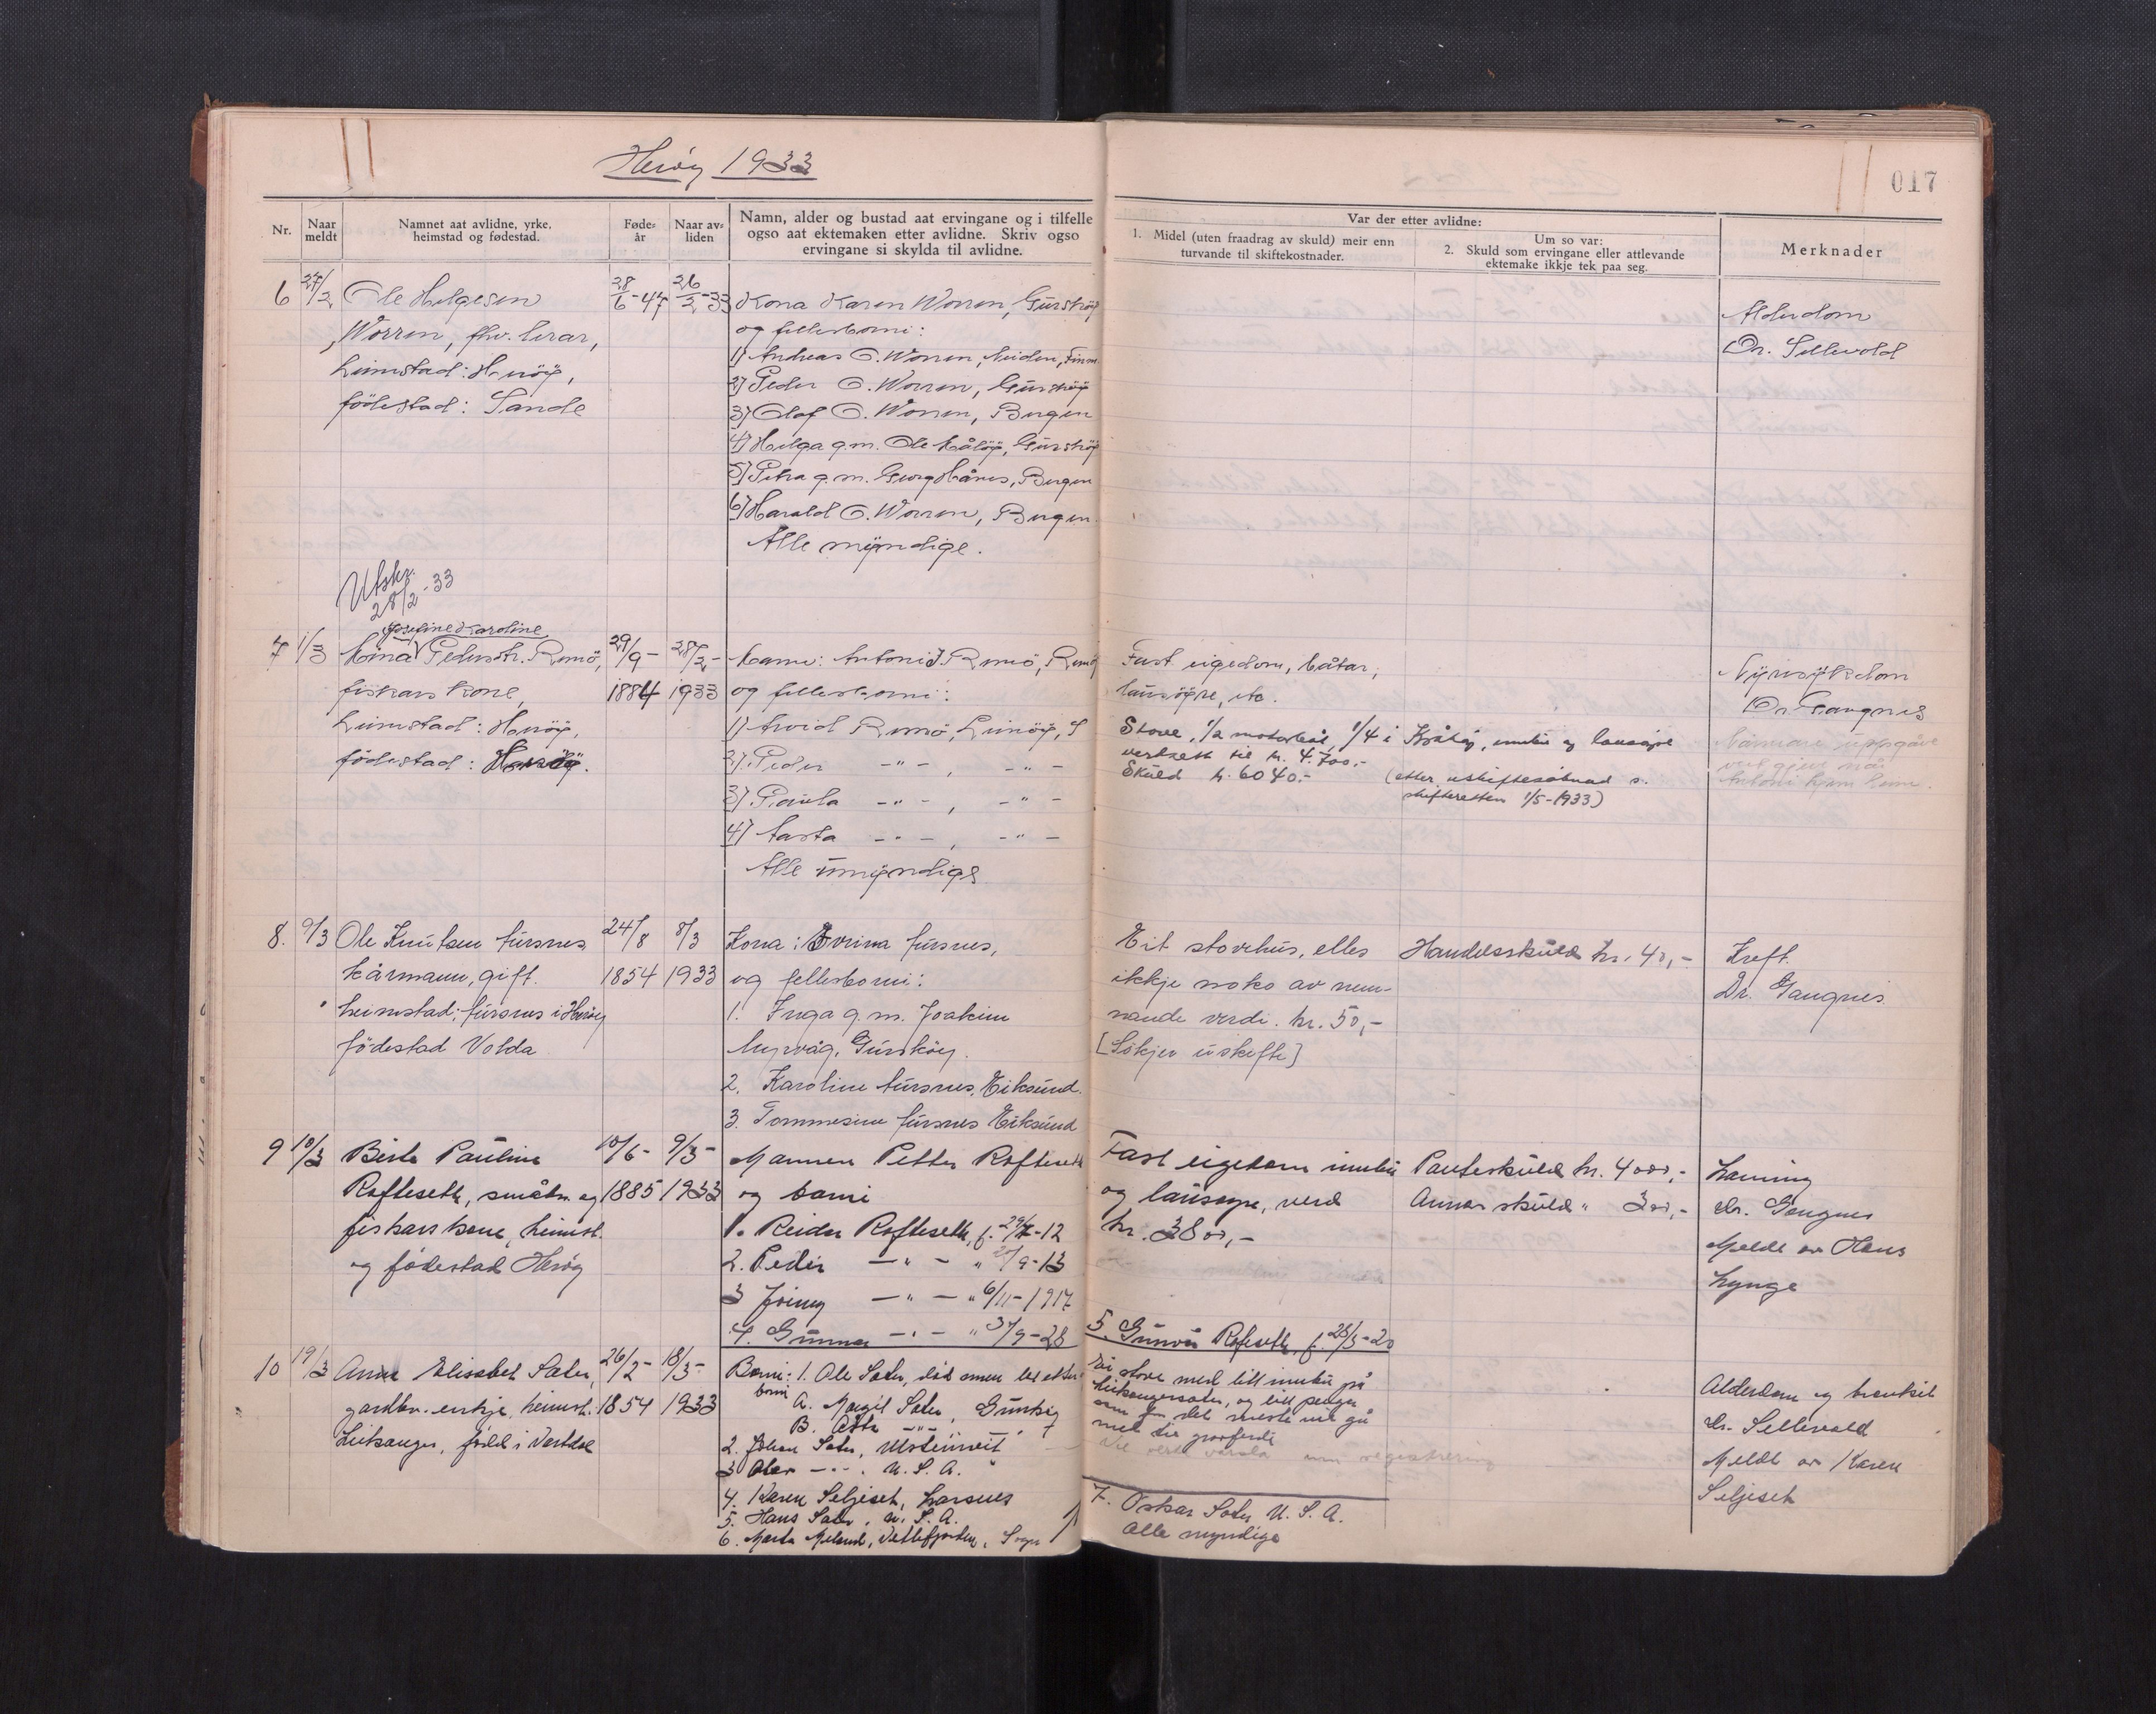 Herøy 1933
017
Nr.
Naar meldt
Namnet aat avlidne, yrke, heimstad og fødestad.
Føde-år
Naar av-liden
Namn, alder og bustad aat ervingane og i tilfelle
ogso aat ektemaken etter avlidne. Skriv ogso
ervingane si skylda til avlidne.
Var der etter avlidne:
1. Midel (uten fraadrag av skuld) meir enn
turvande til skiftekostnader.
Um so var:
2. Skuld som ervingane eller attlevande
ektemake ikkje tek paa seg.
Merknader
6 27/2 Ole Helgesen 28/6-47 26/2-33 Kona Karen Worren, Gurskøy
Worren, fhv. lærar, og fellesborni:
heimstad: Herøy,
fødestad: Sande
1) Andreas O. Worren, Neiden, Finnm.
2) Peder O. Worren, Gurskøy
3) Olaf O. Worren, Bergen
4) Helga g.m. Ole Måløy, Gurskøy
5) Petra g.m. Georg Hånes, Bergen
6) Harald O. Worren, Bergen.
Alle myndige.
Alderdom
Dr. Sellevold
Utskr.
28/2-33
Josefine Karoline
7 1/3 Mina Pedersdtr. Remö, 29/9- 28/2- Mann: Antoni J Remö, Remö
fiskars kone, 1884 1933 og fellesborni:
heimstad: Herøy,
fødestad: Herøy.
1) Arvid Remö, Leinøy, S
2) Peder -"-, -"-
3) Paula -"-, -"-
4) Aasta -"-, -"-
Alle umyndige
Fast eigedom, båtar,
lausøyre, etc.
Stove, 1/2 motorbåt, 1/4 i Kjåløy, innbu og lausøyre
verdsett til kr. 4.700.-
Skuld kr. 6040.- (etter uskiftesøknad s.
skifteretten 1/5-1933)
Nyresykdom
Dr. Gangnes
Nærmare uppgåve
vert gjeve når
Antoni kjem heim.
8. 9/3 Ole Knutsen Aursnes 24/8 8/3 Kona: Evrina Aursnes,
kårmann, gift. 1854 1933 og fellesborni:
heimstad: Aursnes i Herøy
fødestad Volda
1. Inga g.m. Joakim
Myrvåg, Gurskøy.
2. Karoline Aursnes, Eiksund.
3. Tommesine Aursnes Eiksund
Eit stovehus, elles
ikkje noko av nem-
nande verdi. kr. 50,-
[Søkjer uskifte]
Handelsskuld kr. 40,-
Kreft.
Dr. Gangnes
9 10/3 Berte Pauline 10/6- 9/3- Mannen Petter Rafteseth
Rafteseth, småbr. og 1885 1933 og borni
fiskars kone, heimst.
og fødestad Herøy
1. Reidar Rafteseth, f. 29/7-12
2. Peder -"- " /9-13
3 Jenny -"- " 6/11-1917
4. Gunnar -"- " 3/9-28
5. Gunvor Rafteseth, f. 28/3-20
Fast eigedom innbu
og lausøyre, verd
kr. 3800,-
Panteskuld kr. 4000,-
Annan skuld " 300,-
Laming
Dr. Gangnes
Meldt av Hans
Lynge
10 19/3 Anne Elisabet Sæter, 26/2- 18/3- Borni: 1. Ole Sæter, død men let etter
gardbr. enkje, heimst: 1854 1933 borni
Leikanger, fødd i Vestdal
A. Margit Sæter, Gurskøy
B. Asta -"-
2. Johan Sæter, Ulsteinvik
3 Olav -"-. U.S.A.
4. Karen Seljeset, Larsnes
5. Hans Sæter, U.S.A.
6. Marta Meland, Vetlefjorden, Sogn
7. Oskar Sæter U.S.A.
Alle myndige
Ei stove med litt innbu på
Leikangersæter, og litt pengar
som for det meste vil gå
med til gravferdi
Alderdom og bronkit
Dr. Sellevold
Meldt av Karen
Seljeset